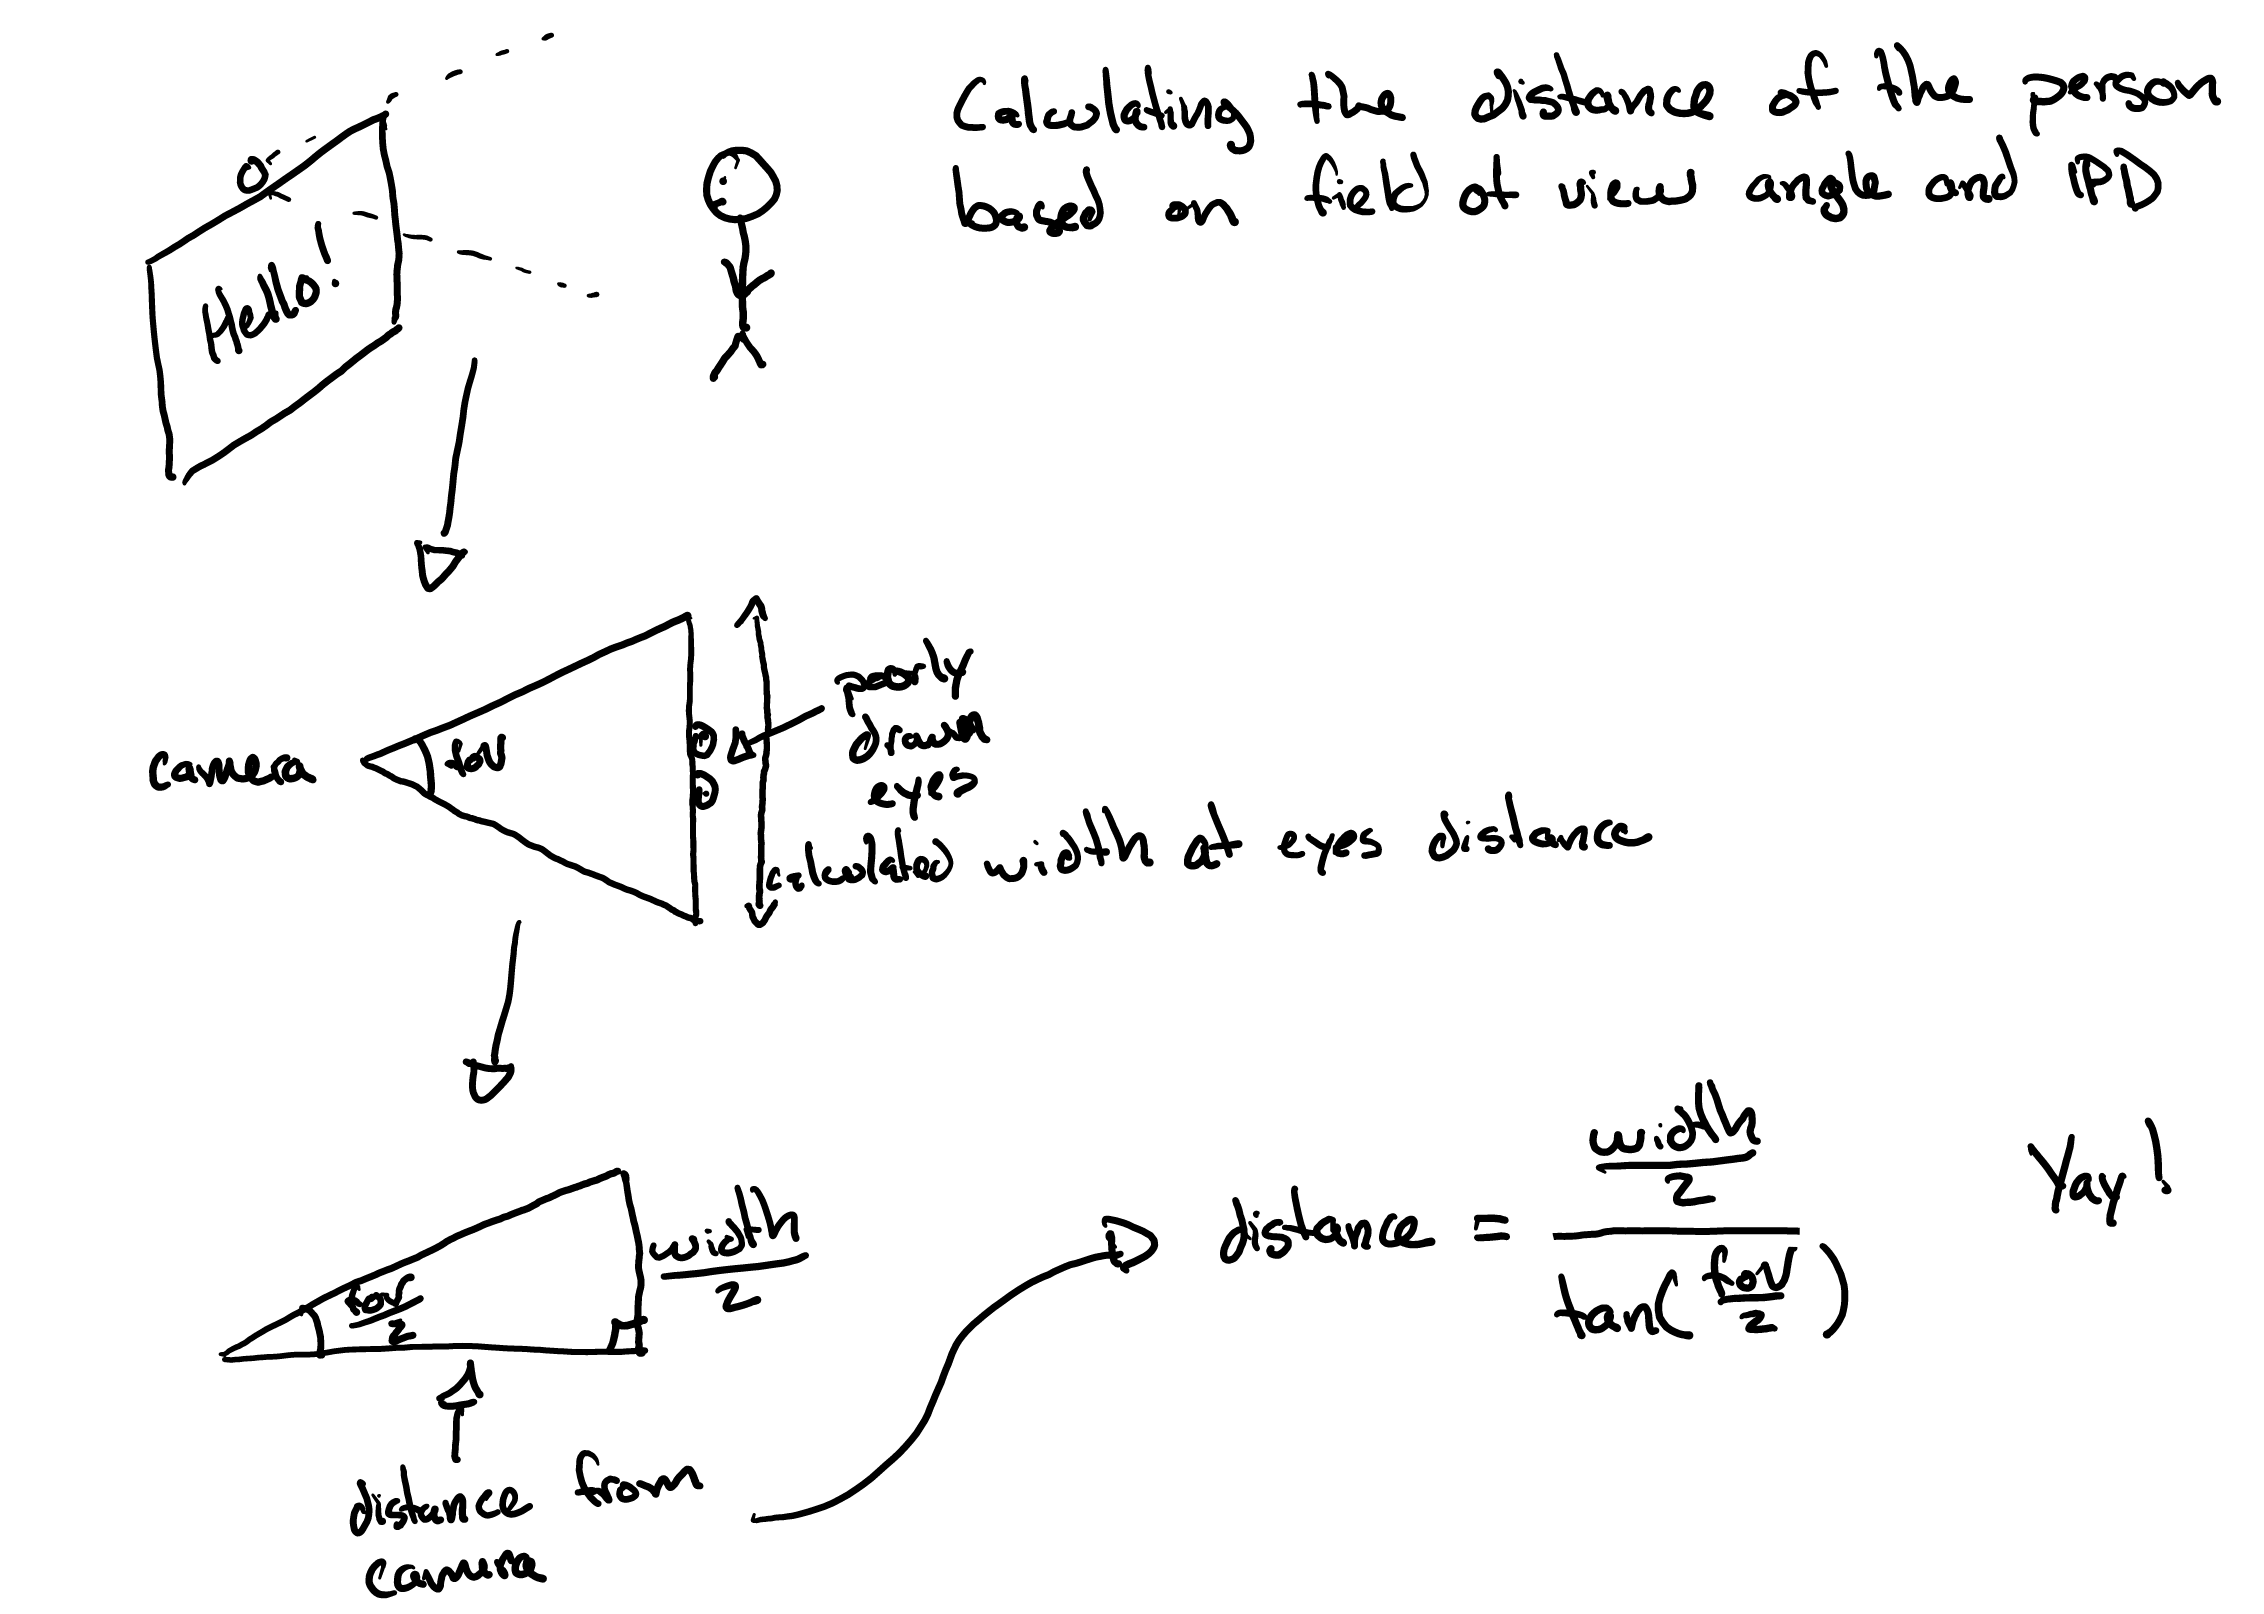 Calculating the distance of the person
based on field of view angle and IPD
Hello!
poorly
drawn
eyes
camera
fov
calculated width at eyes distance
width
2
fov
2
distance from
camera
distance = width / 2
tan(fov / 2)
Yay!